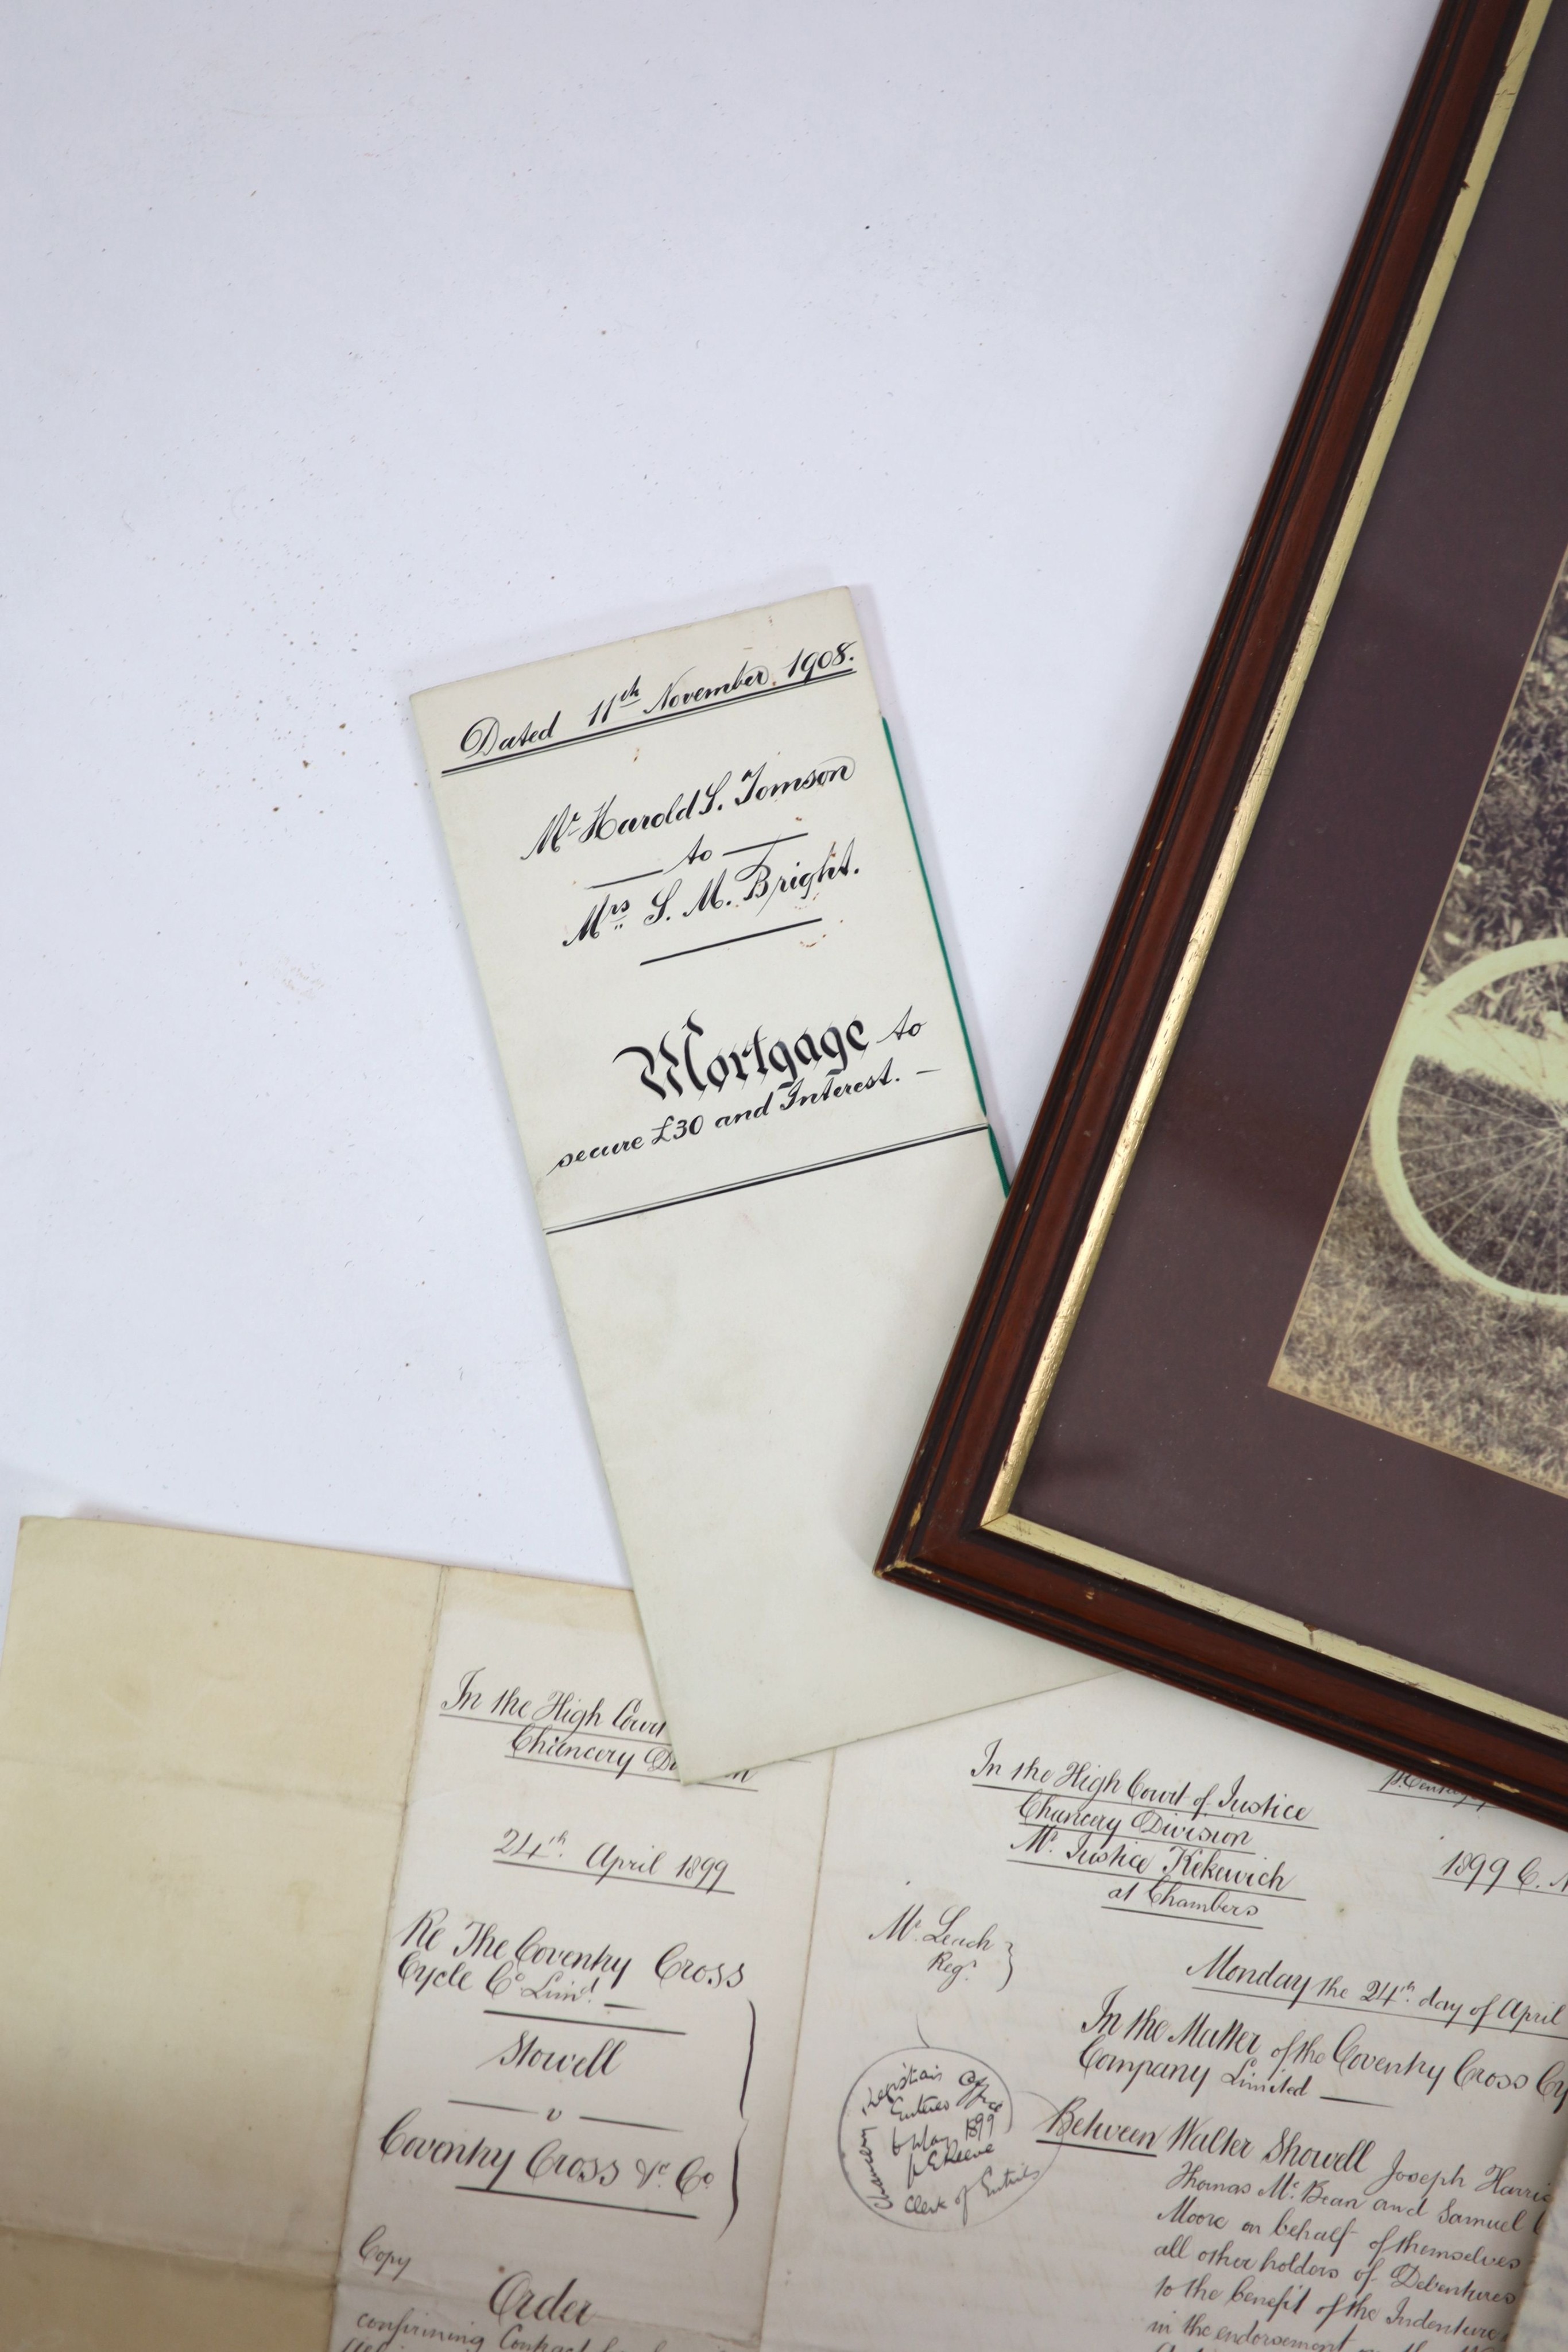 Dated 11th November 1908.
Mr Harold S. Tomson
to
Mrs S. M. Bright.
Mortgage to
secure £30 and Interest.
In the High Court
Chancery
24th April 1899
Re The Coventry Cross
Cycle Co Limd.
Showell
v
Coventry Cross &c. Co
Copy
Order
confirming Contract
In the High Court of Justice
Chancery Division
Mr. Justice Kekewich
at Chambers
1899 C.
Mr Leach
Regr
Monday the 24th day of April
In the Matter of the Coventry Cross Cy
Company Limited
Chancery Registrars Office
Entered
6 May 1899
Clerk of Entries
Between Walter Showell Joseph Harris
Thomas Mc. Bean and Samuel
Moore on behalf of themselves
all other holders of Debentures
to the benefit of the Indenture
in the endorsement